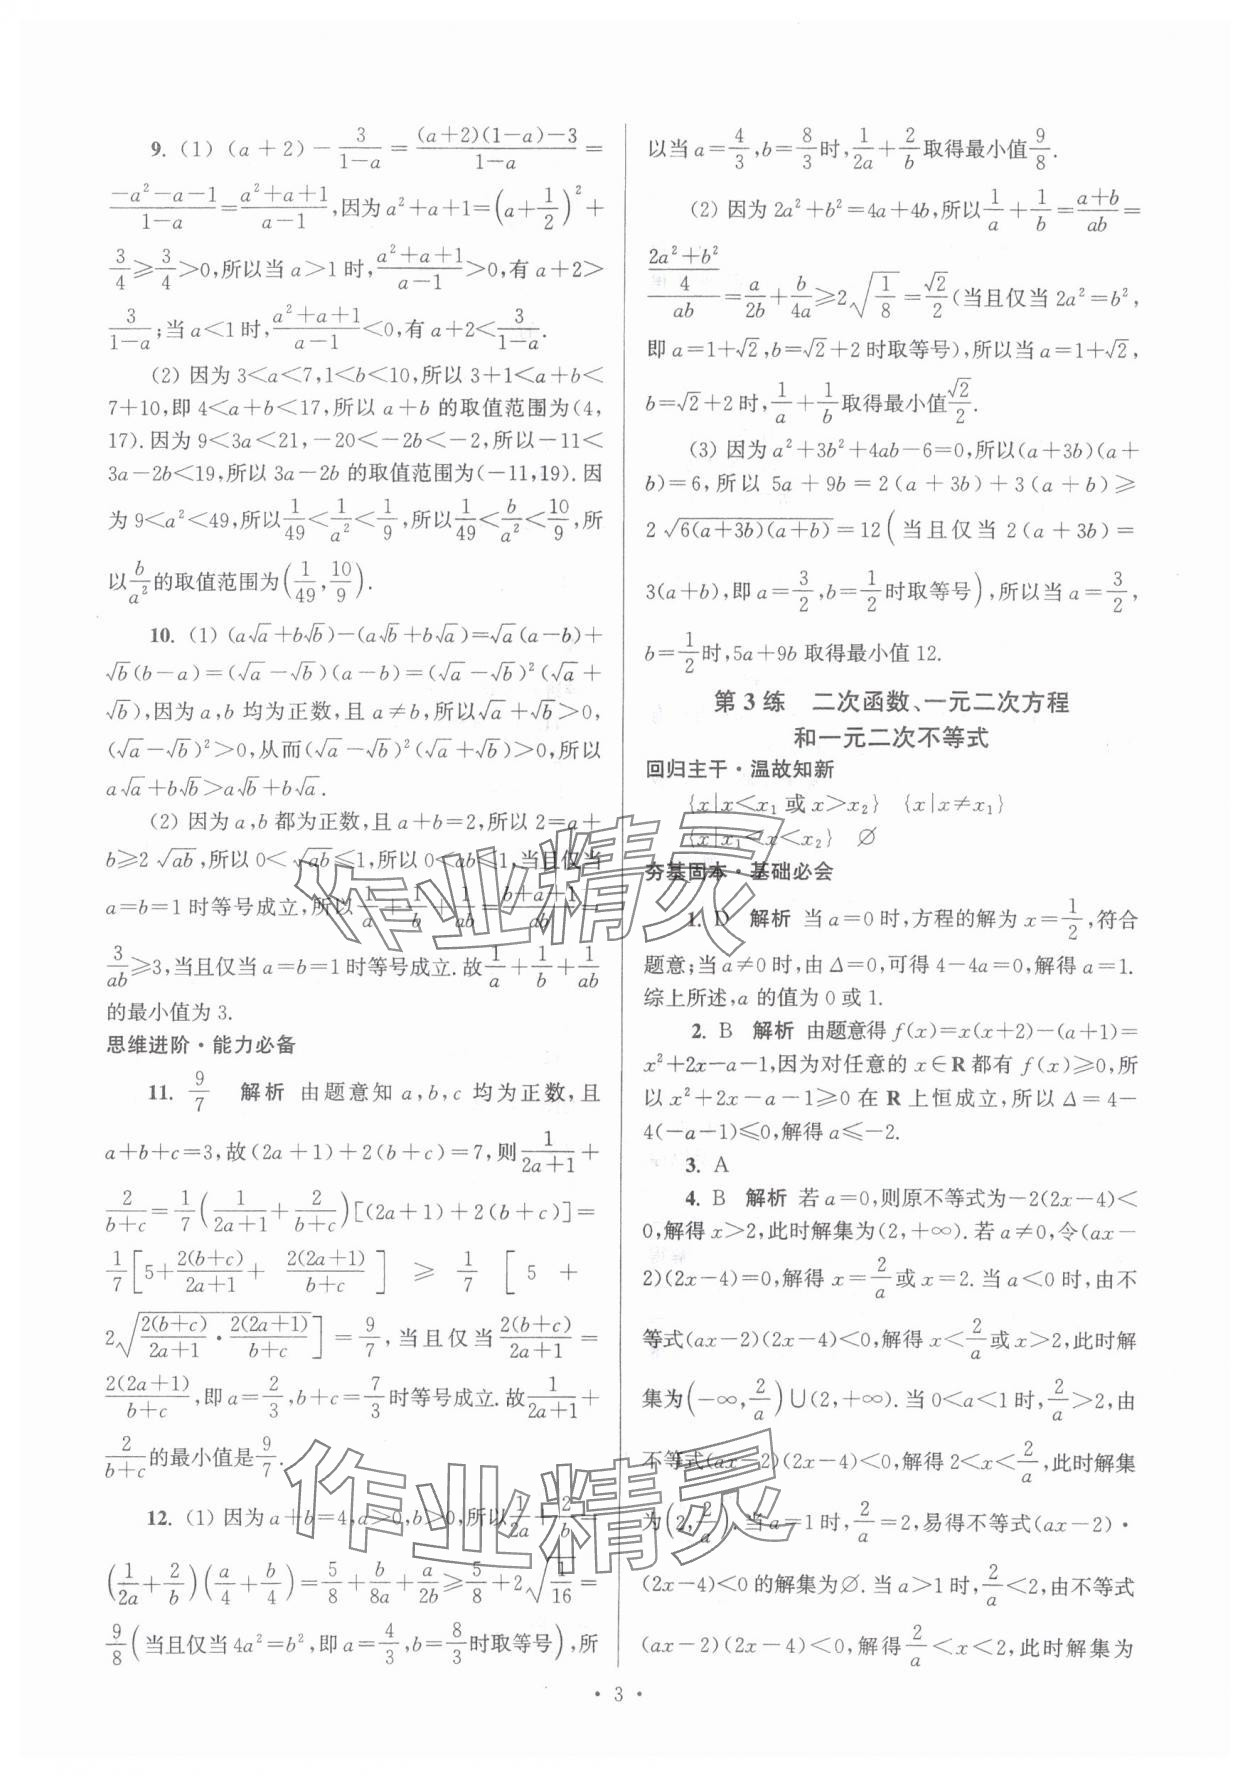 9. (1) (a+2)-\frac{3}{1-a}=\frac{(a+2)(1-a)-3}{1-a}=
\frac{-a^2-a-1}{1-a}=\frac{a^2+a+1}{a-1},因为 a^2+a+1=(a+\frac{1}{2})^2+
\frac{3}{4}≥\frac{3}{4}>0,所以当 a>1 时,\frac{a^2+a+1}{a-1}>0,有 a+2>
\frac{3}{1-a};当 a<1 时,\frac{a^2+a+1}{a-1}<0,有 a+2<\frac{3}{1-a}.
(2) 因为 3<a<7,1<b<10,所以 3+1<a+b<
7+10,即 4<a+b<17,所以 a+b 的取值范围为(4,
17).因为 9<3a<21,-20<-2b<-2,所以-11<
3a-2b<19,所以 3a-2b 的取值范围为(-11,19).因
为 9<a^2<49,所以\frac{1}{49}<\frac{1}{a^2}<\frac{1}{9},所以\frac{1}{49}<\frac{b}{a^2}<\frac{10}{9},所
以\frac{b}{a^2}的取值范围为(\frac{1}{49},\frac{10}{9}).
10. (1) (a√a+b√b)-(a√b+b√a)=√a(a-b)+
√b(b-a)=(√a-√b)(a-b)=(√a-√b)^2(√a+
√b),因为 a,b 均为正数,且 a≠b,所以√a+√b>0,
(√a-√b)^2>0,从而(√a-√b)^2(√a+√b)>0,所以
a√a+b√b>a√b+b√a.
(2) 因为 a,b 都为正数,且 a+b=2,所以 2=a+
b≥2√ab,所以 0<√ab≤1,所以 0<ab≤1,当且仅当
a=b=1 时等号成立,所以\frac{1}{a}+\frac{1}{b}+\frac{1}{ab}=\frac{b+a+1}{ab}=
\frac{3}{ab}≥3,当且仅当 a=b=1 时等号成立.故\frac{1}{a}+\frac{1}{b}+\frac{1}{ab}
的最小值为 3.
思维进阶·能力必备
11. \frac{9}{7} 解析 由题意知 a,b,c 均为正数,且
a+b+c=3,故(2a+1)+2(b+c)=7,则\frac{1}{2a+1}+
\frac{2}{b+c}=\frac{1}{7}(\frac{1}{2a+1}+\frac{2}{b+c})[(2a+1)+2(b+c)]=
\frac{1}{7}[5+\frac{2(b+c)}{2a+1}+\frac{2(2a+1)}{b+c}]≥\frac{1}{7}[5+
2\sqrt{\frac{2(b+c)}{2a+1}·\frac{2(2a+1)}{b+c}}]=\frac{9}{7},当且仅当\frac{2(b+c)}{2a+1}=
\frac{2(2a+1)}{b+c},即 a=\frac{2}{3},b+c=\frac{7}{3}时等号成立.故\frac{1}{2a+1}+
\frac{2}{b+c}的最小值是\frac{9}{7}.
12. (1) 因为 a+b=4,a>0,b>0,所以\frac{1}{2a}+\frac{2}{b}=
(\frac{1}{2a}+\frac{2}{b})(\frac{a}{4}+\frac{b}{4})=\frac{5}{8}+\frac{b}{8a}+\frac{a}{2b}≥\frac{5}{8}+2\sqrt{\frac{1}{16}}=
\frac{9}{8}(当且仅当 4a^2=b^2,即 a=\frac{4}{3},b=\frac{8}{3}时取等号),所
以当 a=\frac{4}{3},b=\frac{8}{3}时,\frac{1}{2a}+\frac{2}{b}取得最小值\frac{9}{8}.
(2) 因为 2a^2+b^2=4a+4b,所以\frac{1}{a}+\frac{1}{b}=\frac{a+b}{ab}=
\frac{\frac{2a^2+b^2}{4}}{ab}=\frac{a}{2b}+\frac{b}{4a}≥2\sqrt{\frac{1}{8}}=\frac{√2}{2}(当且仅当 2a^2=b^2,
即 a=1+√2,b=√2+2 时取等号),所以当 a=1+√2,
b=√2+2 时,\frac{1}{a}+\frac{1}{b}取得最小值\frac{√2}{2}.
(3) 因为 a^2+3b^2+4ab-6=0,所以(a+3b)(a+
b)=6,所以 5a+9b=2(a+3b)+3(a+b)≥
2\sqrt{6(a+3b)(a+b)}=12(当且仅当 2(a+3b)=
3(a+b),即 a=\frac{3}{2},b=\frac{1}{2}时取等号),所以当 a=\frac{3}{2},
b=\frac{1}{2}时,5a+9b 取得最小值 12.
第 3 练 二次函数、一元二次方程
和一元二次不等式
回归主干·温故知新
{x|x<x_1 或 x>x_2} {x|x≠x_1}
{x|x_1<x<x_2} ∅
夯基固本·基础必会
1. D 解析 当 a=0 时,方程的解为 x=\frac{1}{2},符合
题意;当 a≠0 时,由 Δ=0,可得 4-4a=0,解得 a=1.
综上所述,a 的值为 0 或 1.
2. B 解析 由题意得 f(x)=x(x+2)-(a+1)=
x^2+2x-a-1,因为对任意的 x∈R 都有 f(x)≥0,所
以 x^2+2x-a-1≥0 在 R 上恒成立,所以 Δ=4-
4(-a-1)≤0,解得 a≤-2.
3. A
4. B 解析 若 a=0,则原不等式为-2(2x-4)<
0,解得 x>2,此时解集为(2,+∞).若 a≠0,令(ax-
2)(2x-4)=0,解得 x=\frac{2}{a}或 x=2.当 a<0 时,由不
等式(ax-2)(2x-4)<0,解得 x<\frac{2}{a}或 x>2,此时解
集为(-∞,\frac{2}{a})∪(2,+∞).当 0<a<1 时,\frac{2}{a}>2,由
不等式(ax-2)(2x-4)<0,解得 2<x<\frac{2}{a},此时解集
为(2,\frac{2}{a}).当 a=1 时,\frac{2}{a}=2,易得不等式(ax-2)·
(2x-4)<0 的解集为∅.当 a>1 时,\frac{2}{a}<2,由不等式
(ax-2)(2x-4)<0,解得\frac{2}{a}<x<2,此时解集为
· 3 ·
作业精灵
作业精灵